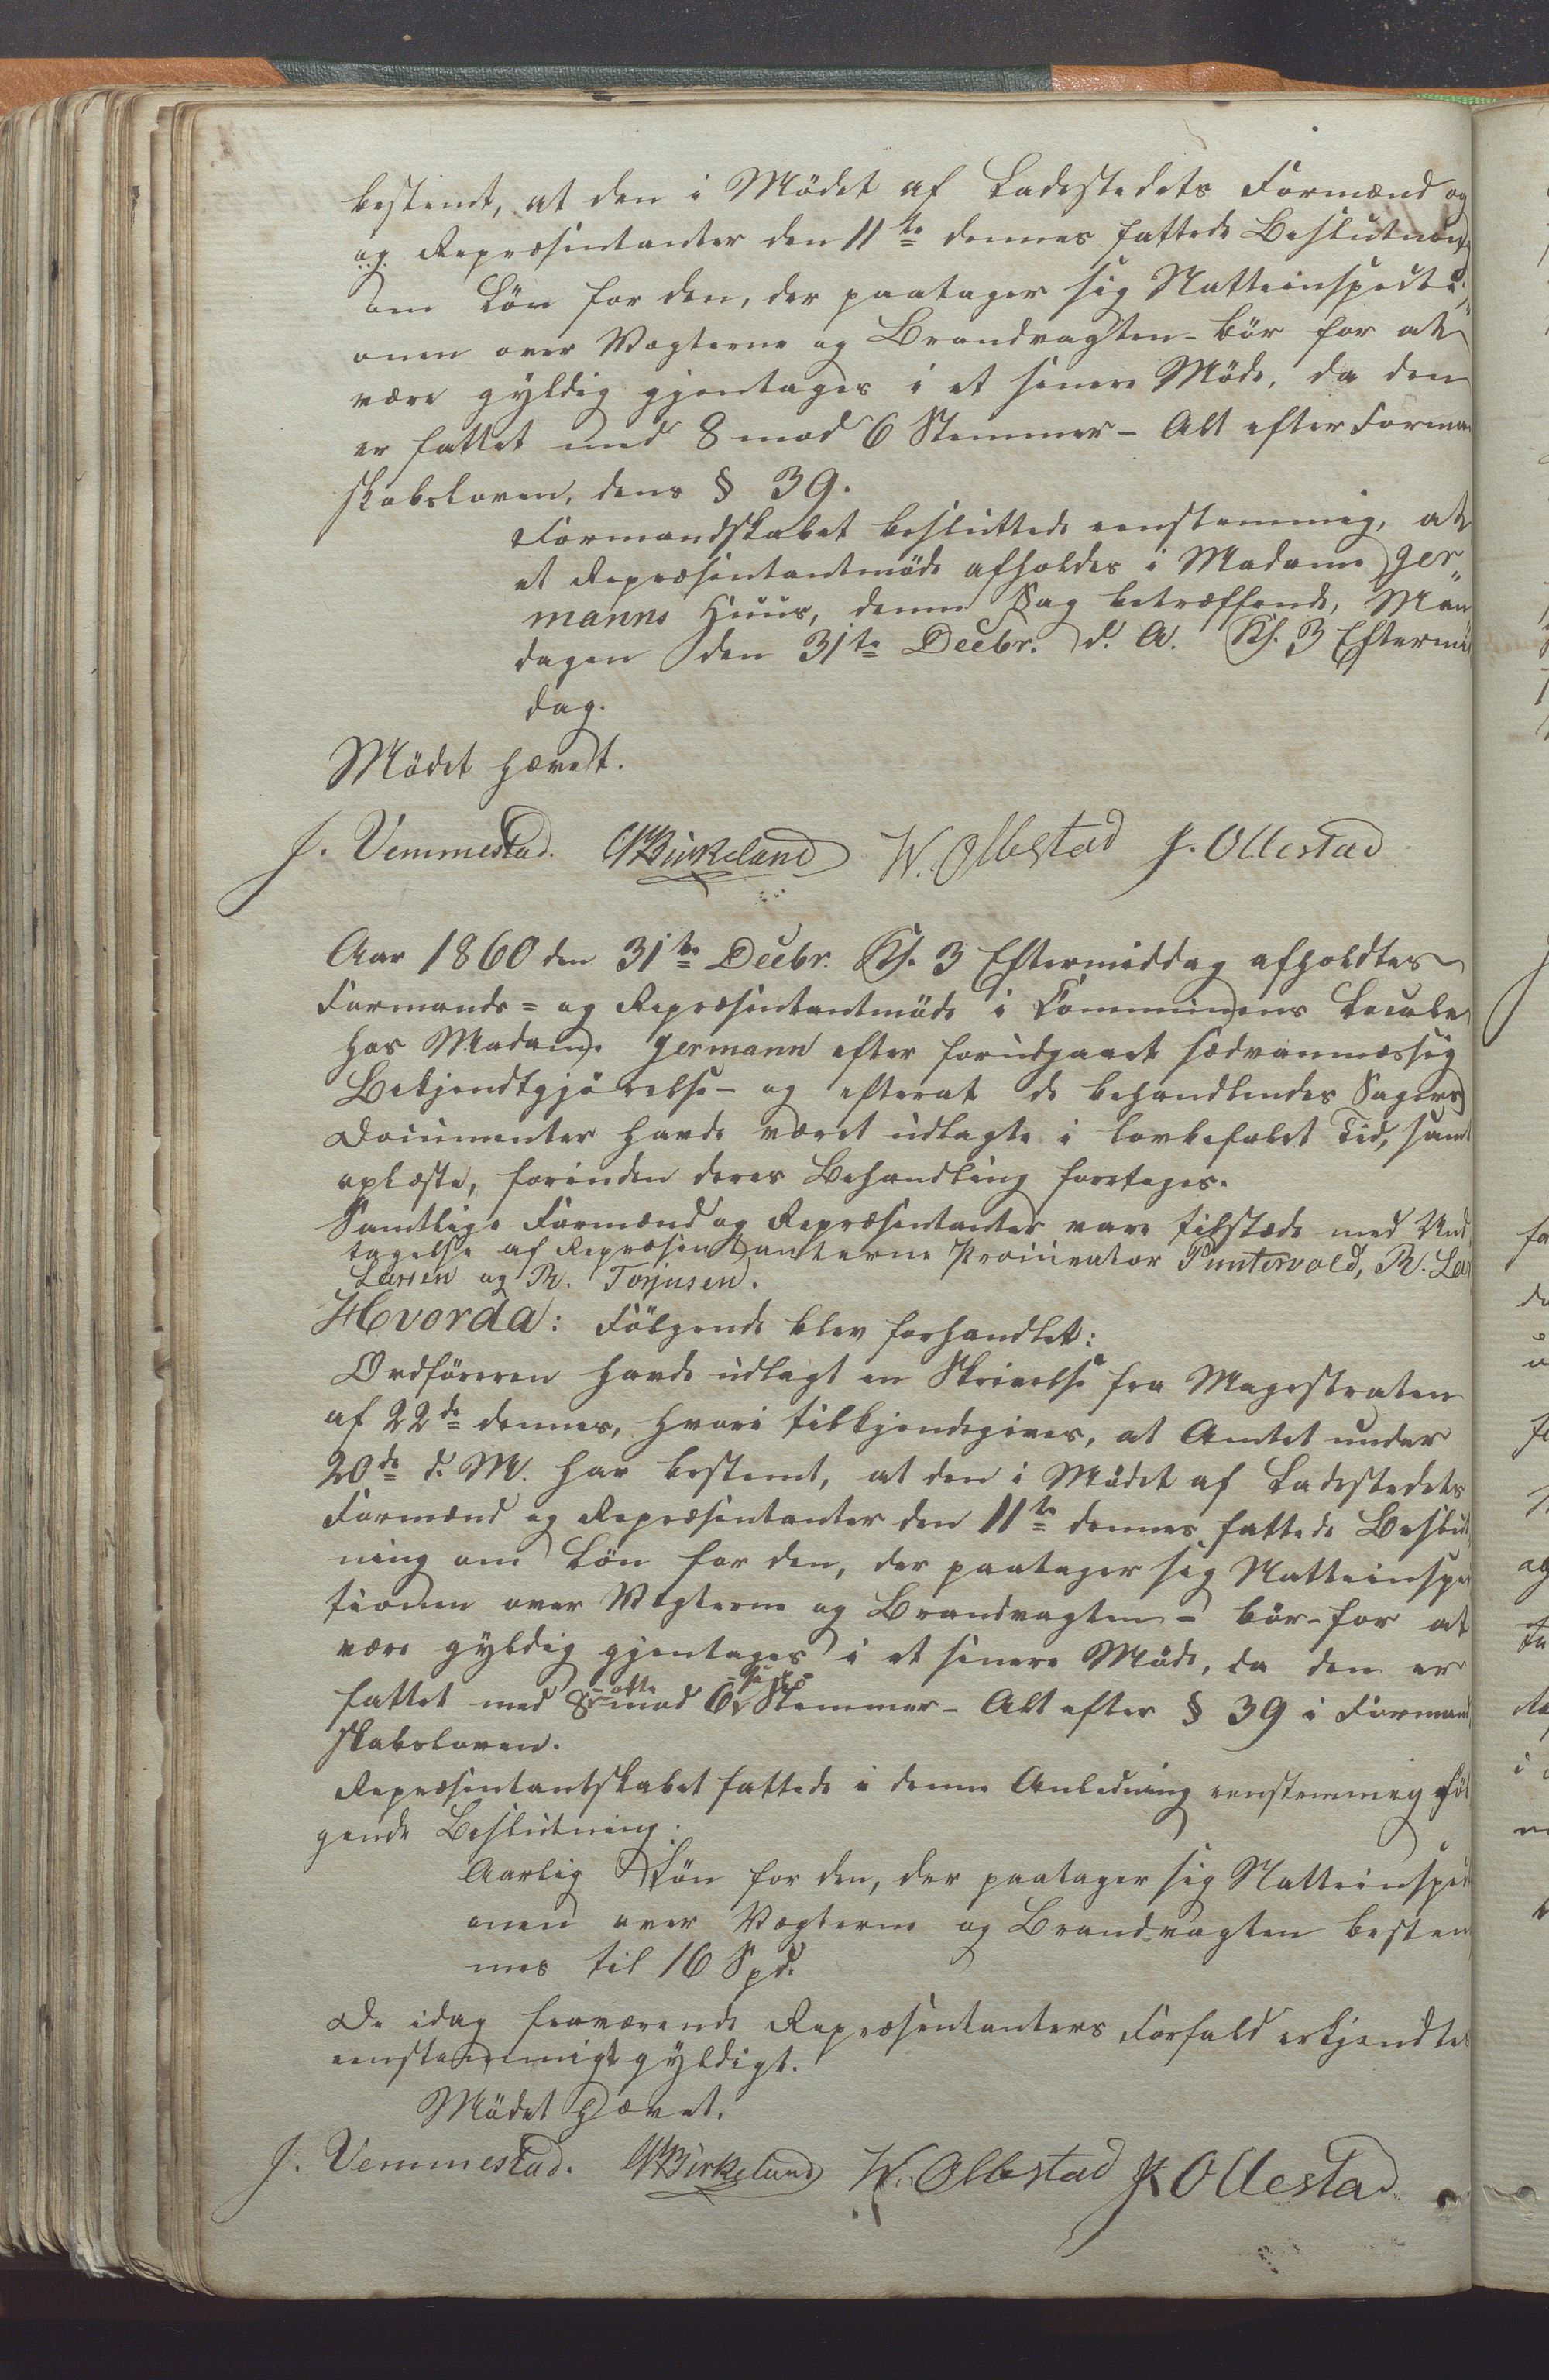 bestemt, at den i Mödet af Ladestedets Formænd og
og Repræsentanter den 11te dennes fattede Beslutning
om Lön for den, der paatager sig Natteinspecti-
onen over Vægterne og Brandvagten - bör for at
være gyldig gjentages i et senere Möde, da den
er fattet med 8 mod 6 Stemmer - Alt efter Forman
skabsloven, dens § 39.
Formandskabet besluttede eenstemmig, at
et Repræsentantmöde afholdes i Madame Ger„
manns Huus, denne Sag betræffende, Man
dagen den 31te Decbr. d. A. Kl. 3 Eftermid
dag.
Mödet hævet.
J. Vemmestad. Birkeland W. Ollestad J. Ollestad
Aar 1860 den 31te Decbr. Kl. 3 Eftermiddag afholdtes
Formands- og Repræsentantmöde i Communens Locale
hos Madame Germann efter forudgaaet sædvanmæssig
Bekjendtgjörelse - og efterat de behandlendes Sagers
Documenter havde været udlagte i lovbefalet Tid, samt
oplæste, forinden deres Behandling foretages.
Samtlige Formænd og Repræsentanter vare tilstæde med Und
tagelse af Repræsentanterne Procurator Puntervold, R. La
Larsen og R. Torjusen.
Hvorda: Fölgende blev forhandlet:
Ordföreren havde udlagt en Skrivelse fra Magistraten
af 22de dennes, hvori tilkjendegives, at Amtet under
20de d. M. har bestemt, at den i Mödet af Ladestedets
Formænd og Repræsentanter den 11te dennes fattede Beslut
ning om Lön for den, der paatager sig Natteinspec
tionen over Vægterne og Brandvagten - bör - for at
være gyldig gjentages i et senere Möde, da den er
fattet med 8 - otte - mod 6 - sex - Stemmer - Alt efter § 39 i Formand
skabsloven.
Repræsentantskabet fattede i denne Anledning eenstemmig föl
gende Beslutning:
Aarlig Lön for den, der paatager sig Natteinspec
onen over Vægterne og Brandvagten bestem
mes til 16 Spd.
De idag fraværende Repræsentanters Forfald erkjendtes
eenstemmigt gyldigt.
Mödet hævet.
J. Vemmestad. Birkeland W. Ollestad J. Ollestad